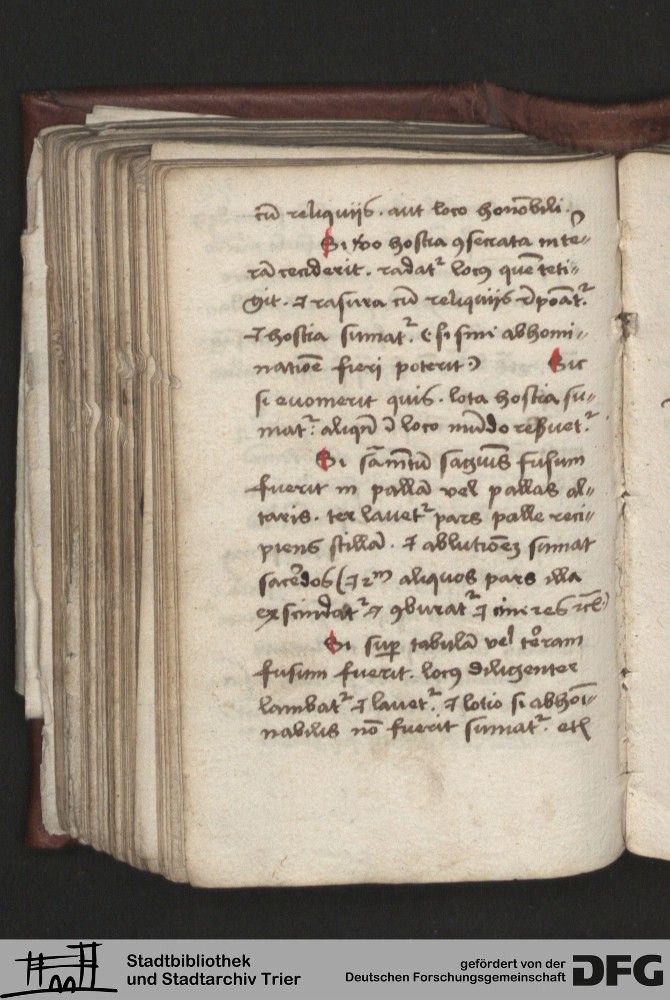 cū reliquiis. aut loco honōbili.
Si v̓o hostia ꝯsecrata in te⸗
rā ceciderit. radatᷣ locꝯ quē teti⸗
git. ⁊ rasura cū reliquiis
⁊ hostia sumatᷣ. (si sine abhomi⸗
natiōe fieri poterit) Sic
si euomerit quis. lota hostia su⸗
matᷣ. aliqn̄ ī loco mūdo reẜuetᷣ.
Si sāctū sāguis fusum
fuerit in pallā vel pallas al⸗
taris. ter lauetᷣ pars palle reci⸗
piens stillā. ⁊ ablutionē sumat
sacerdos (⁊ 2m aliquos pars illa
exscindatᷣ ⁊ ꝯburatᷣ ⁊ cineres
Si suꝑ tabulā vel terram
fusum fuerit. locꝯ diligenter
lambatᷣ ⁊ lauetᷣ. ⁊ lotio si abhoī⸗
nabilis nō fuerit sumatᷣ. etʒ
Stadtbibliothek
und Stadtarchiv Trier
gefördert von der
Deutschen Forschungsgemeinschaft
DFG